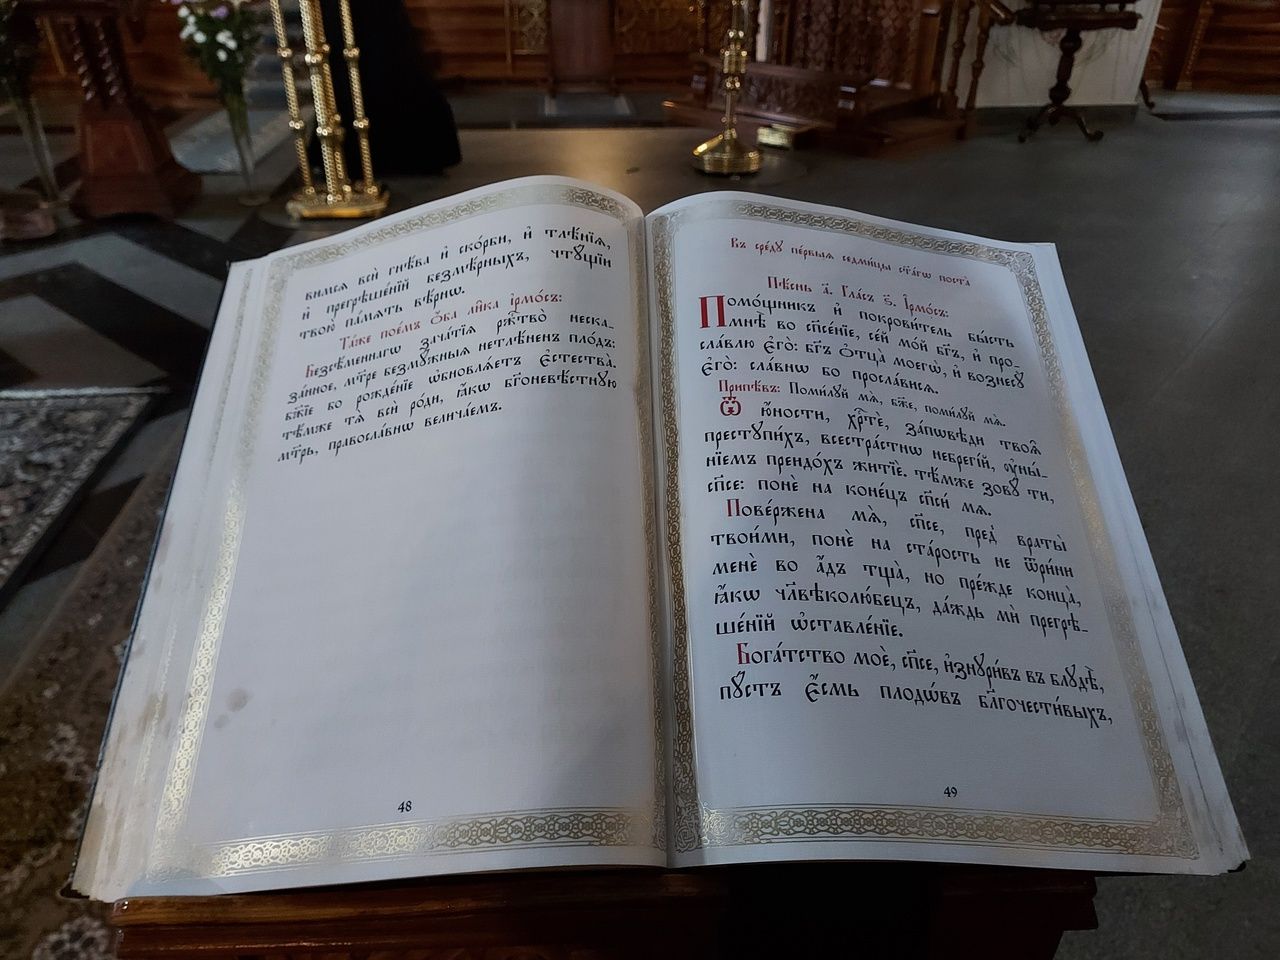 вимсѧ всѝ гнѣ́ва и҆ ско́рби, и҆ тлѣ́нїѧ,
и҆ прегрѣше́нїй безмѣ́рныхъ, чтꙋ́щїи
твою̀ па́мѧть вѣ́рнѡ.
Та́же пое́мъ ѻ҆́ба ли̑ка і҆рмо́съ:
Безсѣ́меннагѡ зача́тїѧ ржⷭ҇тво̀ неска-
за́нное, мт҃ре безмꙋ́жныѧ нетлѣ́ненъ пло́дъ:
бж҃їе бо рожде́нїе ѡ҆бновлѧ́етъ є҆стества̀.
тѣ́мже тѧ̀ всѝ ро́ди, ꙗ҆́кѡ бг҃оневѣ́стнꙋю
мт҃рь, правосла́внѡ велича́емъ.
48
Въ сре́дꙋ пе́рвыѧ седми́цы ст҃а́гѡ поста̀
Пѣ́снь а҃. Гла́съ ѕ҃. І҆рмо́съ:
Помо́щникъ и҆ покрови́тель бы́сть
мнѣ̀ во сп҃се́нїе, се́й мо́й бг҃ъ, и҆ про-
сла́влю є҆го̀: бг҃ъ ѻ҆тца̀ моегѡ̀, и҆ вознесꙋ̀
є҆го̀: сла́внѡ бо просла́висѧ.
Припѣ́въ: Поми́лꙋй мѧ̀, бж҃е, поми́лꙋй мѧ̀.
Ѿ ю҆́ности, хрⷭ҇тѐ, за́пѡвѣди твоѧ̑
престꙋпи́хъ, всестра́стнѡ небрегі́й, ᲂу҆ны́-
нїемъ преидо́хъ житїѐ. тѣ́мже зовꙋ̀ ти,
сп҃се: понѐ на коне́цъ сп҃си́ мѧ.
Пове́ржена мѧ̀, сп҃се, пред̾ враты̀
твои́ми, понѐ на ста́рость не ѿри́ни
менѐ во а҆́дъ тща̀, но пре́жде конца̀,
ꙗ҆́кѡ чл҃вѣколю́бецъ, да́ждь мѝ прегрѣ-
ше́нїй ѡ҆ставле́нїе.
Бога́тство моѐ, сп҃се, и҆знꙋри́въ въ блꙋдѣ̀,
пꙋ́стъ є҆́смь плодѡ́въ бл҃гочести́выхъ,
49